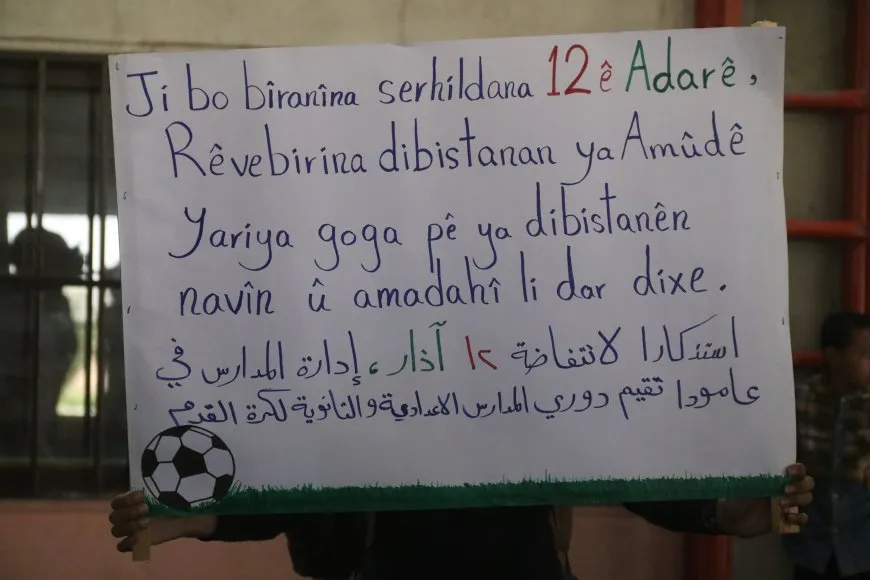 Ji bo bîranîna serhildana 12ê Adarê,
Rêvebirina dibistanan ya Amûdê
Yariya goga pê ya dibistanên
navîn û amadahî li dar dixe.
استذكارا لانتفاضة ١٢ آذار، إدارة المدارس في
عامودا تقيم دوري المدارس الاعدادية والثانوية لكرة القدم